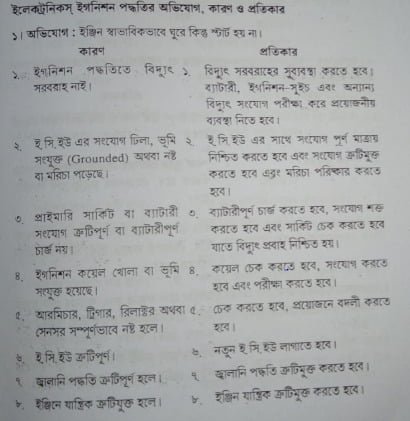 ইলেকট্রনিকস্ ইগনিশন পদ্ধতির অভিযোগ, কারণ ও প্রতিকার
১। অভিযোগ : ইঞ্জিন স্বাভাবিকভাবে ঘুরে কিন্তু স্টার্ট হয় না।
কারণ
প্রতিকার
১. ইগনিশন পদ্ধতিতে বিদ্যুৎ
সরবরাহ নাই।
১. বিদ্যুৎ সরবরাহের সুব্যবস্থা করতে হবে।
ব্যাটারী, ইগনিশন-সুইচ এবং অন্যান্য
বিদ্যুৎ সংযোগ পরীক্ষা করে প্রয়োজনীয়
ব্যবস্থা নিতে হবে।
২. ই.সি.ইউ এর সংযোগ ঢিলা, ভূমি
সংযুক্ত (Grounded) অথবা নষ্ট
বা মরিচা পড়েছে।
২. ই.সি.ইউ এর সাথে সংযোগ পূর্ণ মাত্রায়
নিশ্চিত করতে হবে এবং সংযোগ ত্রুটিমুক্ত
করতে হবে এবং মরিচা পরিষ্কার করতে
হবে।
৩. প্রাইমারি সার্কিট বা ব্যাটারী
সংযোগ ত্রুটিপূর্ণ বা ব্যাটারীপূর্ণ
চার্জ নয়।
৩. ব্যাটারীপূর্ণ চার্জ করতে হবে, সংযোগ শক্ত
করতে হবে এবং সার্কিট চেক করতে হবে
যাতে বিদ্যুৎ প্রবাহ নিশ্চিত হয়।
৪. ইগনিশন কয়েল খোলা বা ভূমি
সংযুক্ত হয়েছে।
৪. কয়েল চেক করতে হবে, সংযোগ করতে
হবে এবং পরীক্ষা করতে হবে।
৫. আরমিচার, ট্রিগার, রিলাক্টর অথবা
সেনসর সম্পূর্ণভাবে নষ্ট হলে।
৫. চেক করতে হবে, প্রয়োজনে বদলী করতে
হবে।
৬. ই.সি.ইউ ত্রুটিপূর্ণ।
৬. নতুন ই.সি.ইউ লাগাতে হবে।
৭ জ্বালানি পদ্ধতি ত্রুটিপূর্ণ হলে।
৭ জ্বালানি পদ্ধতি ত্রুটিমুক্ত করতে হবে।
৮. ইঞ্জিনে যান্ত্রিক ত্রুটিযুক্ত হলে।
৮. ইঞ্জিন যান্ত্রিক ত্রুটিমুক্ত করতে হবে।